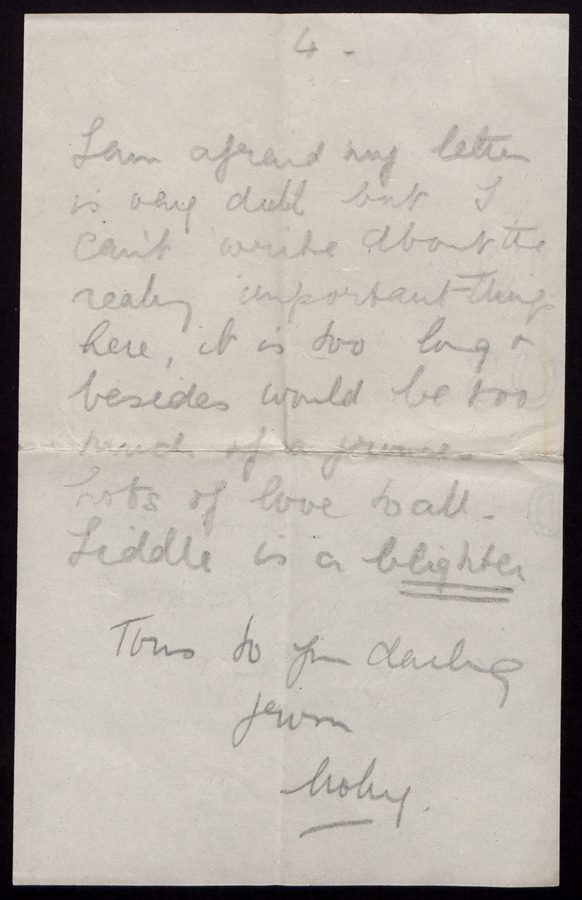 4 -
I am afraid my letter
is very dull but I
can't write about the
really important things
here, it is too long &
besides would be too
much of a
Lots of love to all -
Liddle is a blighter
Tons to you darling
from